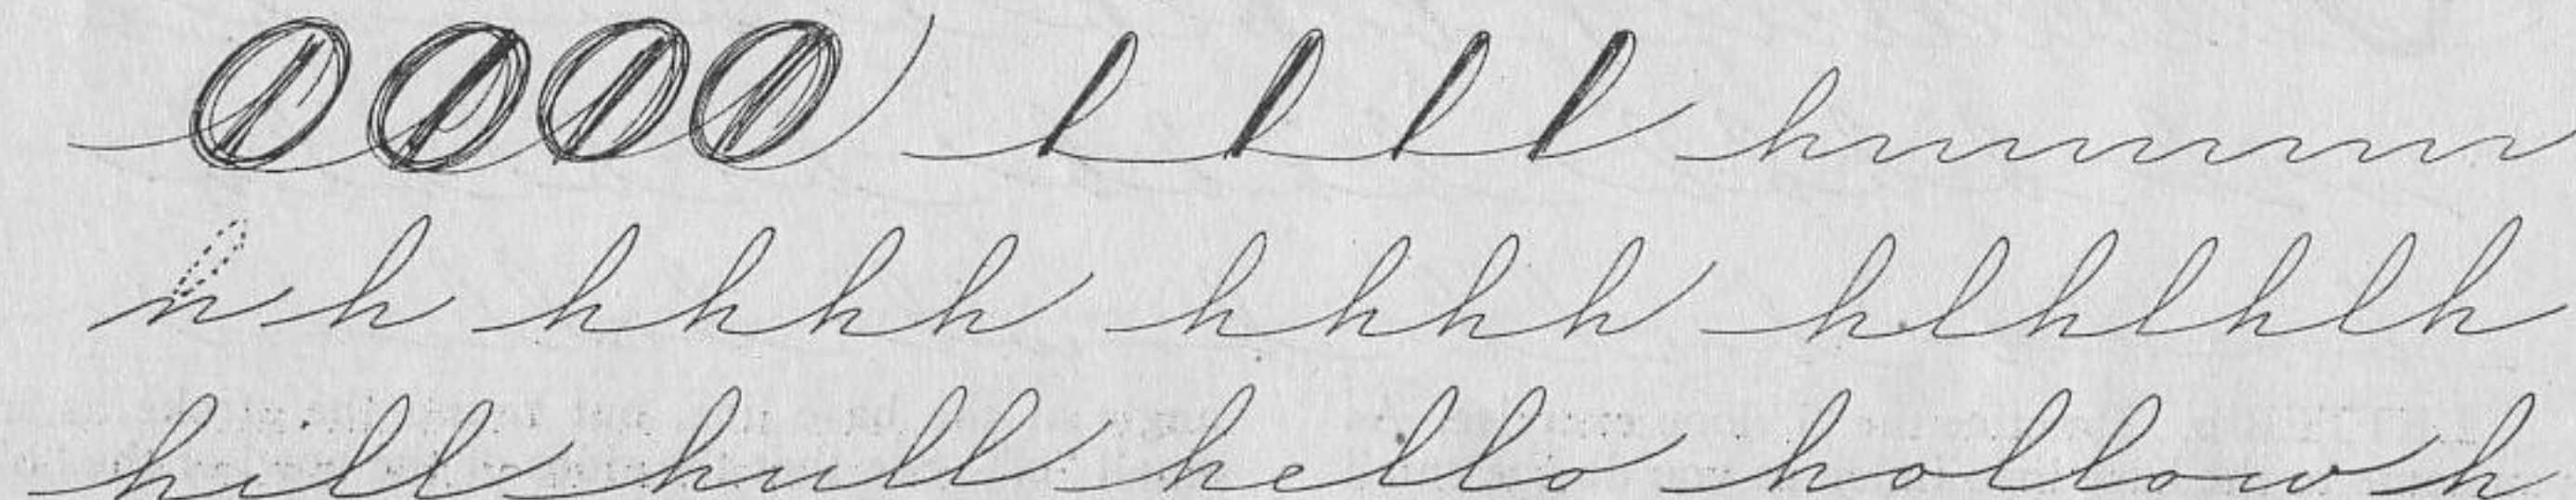 l l l l
n h hhhh hhhh hlhlhlh
hill hull hello hollow h